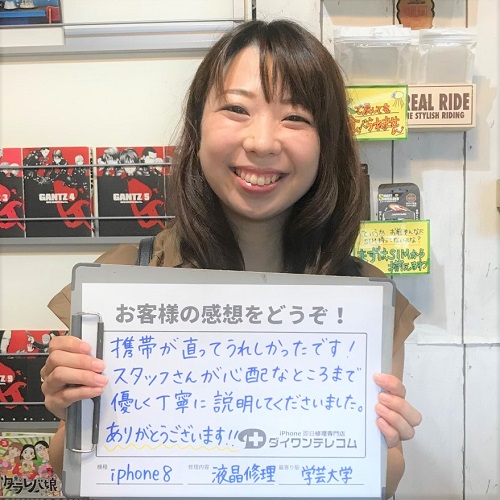 REAL RIDE
THE STYLISH RIDING
GANTZ 4
GANTZ 5
お客様の感想をどうぞ！
携帯が直ってうれしかったです！
スタッフさんが心配なところまで
優しく丁寧に説明してくださいました。
ありがとうございます!!
iPhone 即日修理専門店
ダイワンテレコム
機種 iphone8 修理内容 液晶修理 最寄り駅 学芸大学
まずはSIMから
タラレバ娘